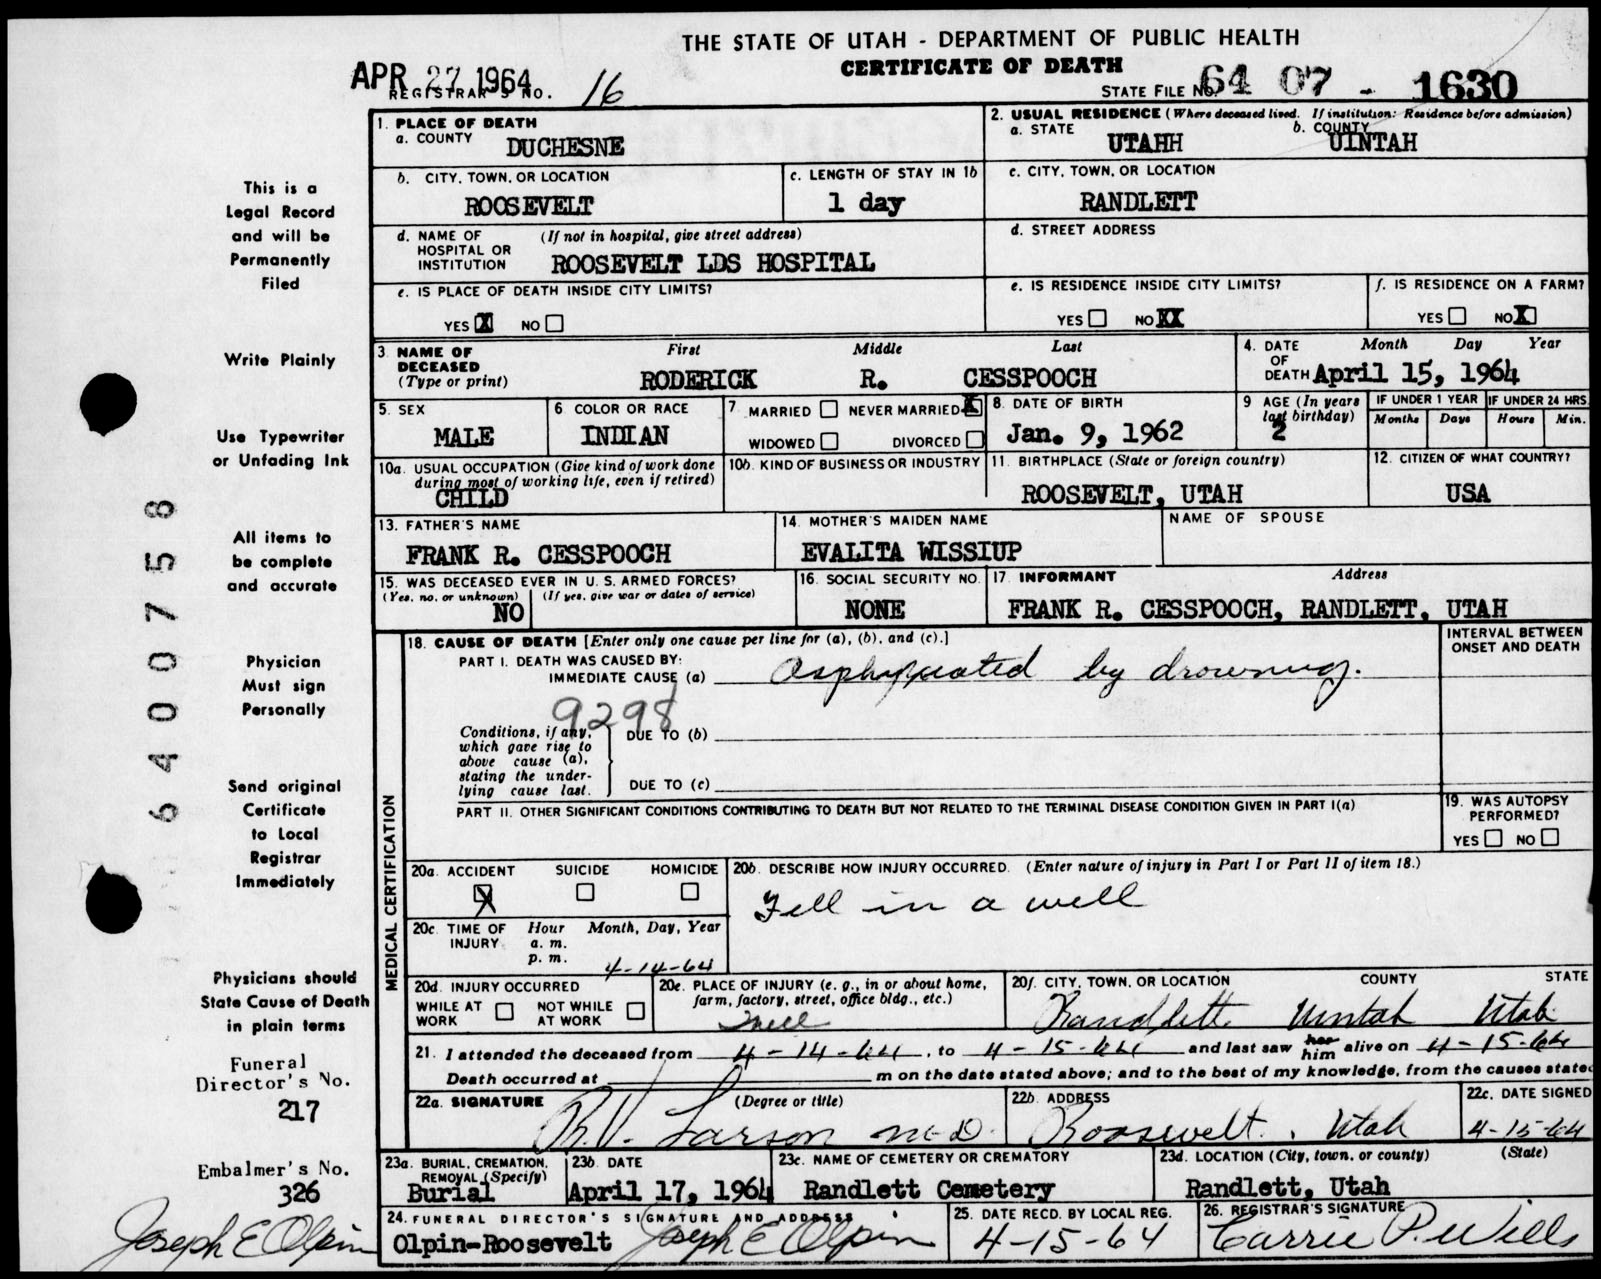 THE STATE OF UTAH - DEPARTMENT OF PUBLIC HEALTH
CERTIFICATE OF DEATH
APR 27 1964
REGISTRAR'S NO. 16
STATE FILE NO. 64 07 - 1630
1. PLACE OF DEATH
a. COUNTY DUCHESNE
2. USUAL RESIDENCE (Where deceased lived. If institution: Residence before admission)
a. STATE UTAHH b. COUNTY UINTAH
b. CITY, TOWN, OR LOCATION ROOSEVELT
c. LENGTH OF STAY IN 1b 1 day
c. CITY, TOWN, OR LOCATION RANDLETT
d. NAME OF HOSPITAL OR INSTITUTION (If not in hospital, give street address) ROOSEVELT LDS HOSPITAL
d. STREET ADDRESS
e. IS PLACE OF DEATH INSIDE CITY LIMITS?
YES X NO
e. IS RESIDENCE INSIDE CITY LIMITS?
YES NO XX
f. IS RESIDENCE ON A FARM?
YES NO X
3. NAME OF DECEASED (Type or print)
First Middle Last
RODERICK R. CESSPOOCH
4. DATE OF DEATH Month Day Year
April 15, 1964
5. SEX MALE
6. COLOR OR RACE INDIAN
7. MARRIED NEVER MARRIED X
WIDOWED DIVORCED
8. DATE OF BIRTH Jan. 9, 1962
9. AGE (In years last birthday) 2
IF UNDER 1 YEAR Months Days
IF UNDER 24 HRS. Hours Min.
10a. USUAL OCCUPATION (Give kind of work done during most of working life, even if retired) CHILD
10b. KIND OF BUSINESS OR INDUSTRY
11. BIRTHPLACE (State or foreign country) ROOSEVELT, UTAH
12. CITIZEN OF WHAT COUNTRY? USA
13. FATHER'S NAME FRANK R. CESSPOOCH
14. MOTHER'S MAIDEN NAME EVALITA WISSIUP
NAME OF SPOUSE
15. WAS DECEASED EVER IN U. S. ARMED FORCES?
(Yes, no, or unknown) (If yes, give war or dates of service)
NO
16. SOCIAL SECURITY NO. NONE
17. INFORMANT Address
FRANK R. CESSPOOCH, RANDLETT, UTAH
MEDICAL CERTIFICATION
18. CAUSE OF DEATH [Enter only one cause per line for (a), (b), and (c).]
INTERVAL BETWEEN ONSET AND DEATH
PART I. DEATH WAS CAUSED BY:
IMMEDIATE CAUSE (a) Asphyxiated by drowning.
9298
Conditions, if any, which gave rise to above cause (a), stating the underlying cause last.
DUE TO (b)
DUE TO (c)
PART II. OTHER SIGNIFICANT CONDITIONS CONTRIBUTING TO DEATH BUT NOT RELATED TO THE TERMINAL DISEASE CONDITION GIVEN IN PART I(a)
19. WAS AUTOPSY PERFORMED?
YES NO
20a. ACCIDENT X SUICIDE HOMICIDE
20b. DESCRIBE HOW INJURY OCCURRED. (Enter nature of injury in Part I or Part II of item 18.)
Fell in a well
20c. TIME OF INJURY Hour Month, Day, Year
a. m.
p. m. 4-14-64
20d. INJURY OCCURRED
WHILE AT WORK NOT WHILE AT WORK
20e. PLACE OF INJURY (e. g., in or about home, farm, factory, street, office bldg., etc.)
Well
20f. CITY, TOWN, OR LOCATION COUNTY STATE
Randlett Uintah Utah
21. I attended the deceased from 4-14-64, to 4-15-64 and last saw her him alive on 4-15-64
Death occurred at m on the date stated above; and to the best of my knowledge, from the causes stated
22a. SIGNATURE (Degree or title)
R.V. Larson M.D.
22b. ADDRESS Roosevelt, Utah
22c. DATE SIGNED 4-15-64
23a. BURIAL, CREMATION, REMOVAL (Specify) Burial
23b. DATE April 17, 1964
23c. NAME OF CEMETERY OR CREMATORY Randlett Cemetery
23d. LOCATION (City, town, or county) (State)
Randlett, Utah
24. FUNERAL DIRECTOR'S SIGNATURE AND ADDRESS
Olpin-Roosevelt Joseph E Olpin
25. DATE RECD. BY LOCAL REG. 4-15-64
26. REGISTRAR'S SIGNATURE
Carrie P. Wills
This is a
Legal Record
and will be
Permanently
Filed
Write Plainly
Use Typewriter
or Unfading Ink
All items to
be complete
and accurate
Physician
Must sign
Personally
Send original
Certificate
to Local
Registrar
Immediately
Physicians should
State Cause of Death
in plain terms
Funeral
Director's No.
217
Embalmer's No.
326
Joseph E Olpin
6400758